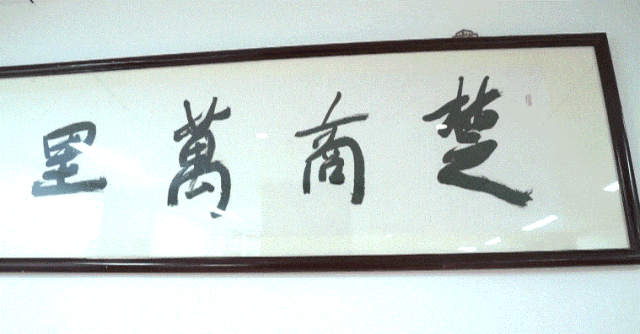 楚商萬里